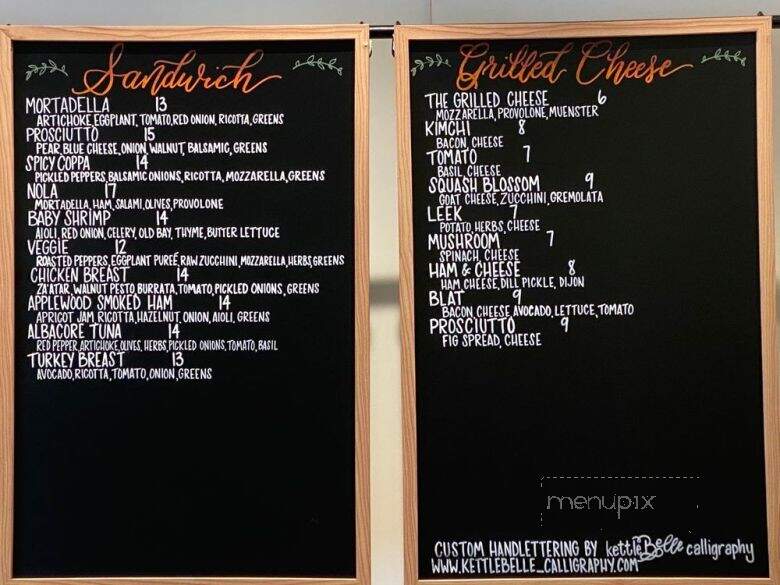 Sandwich
MORTADELLA 13
ARTICHOKE, EGGPLANT, TOMATO, RED ONION, RICOTTA, GREENS
PROSCIUTTO 15
PEAR, BLUE CHEESE, ONION, WALNUT, BALSAMIC, GREENS
SPICY COPPA 14
PICKLED PEPPERS, BALSAMIC ONIONS, RICOTTA, MOZZARELLA, GREENS
NOLA 17
MORTADELLA, HAM, SALAMI, OLIVES, PROVOLONE
BABY SHRIMP 14
AIOLI, RED ONION, CELERY, OLD BAY, THYME, BUTTER LETTUCE
VEGGIE 12
ROASTED PEPPERS, EGGPLANT PUREÉ, RAW ZUCCHINI, MOZZARELLA, HERBS, GREENS
CHICKEN BREAST 14
ZA'ATAR, WALNUT PESTO, BURRATA, TOMATO, PICKLED ONIONS, GREENS
APPLEWOOD SMOKED HAM 14
APRICOT JAM, RICOTTA, HAZELNUT, ONION, AIOLI, GREENS
ALBACORE TUNA 14
RED PEPPER, ARTICHOKE, OLIVES, HERBS, PICKLED ONIONS, TOMATO, BASIL
TURKEY BREAST 13
AVOCADO, RICOTTA, TOMATO, ONION, GREENS
Grilled Cheese
THE GRILLED CHEESE 6
MOZZARELLA, PROVOLONE, MUENSTER
KIMCHI 8
BACON, CHEESE
TOMATO 7
BASIL, CHEESE
SQUASH BLOSSOM 9
GOAT CHEESE, ZUCCHINI, GREMOLATA
LEEK 7
POTATO, HERBS, CHEESE
MUSHROOM 7
SPINACH, CHEESE
HAM & CHEESE 8
HAM, CHEESE, DILL PICKLE, DIJON
BLAT 9
BACON, CHEESE, AVOCADO, LETTUCE, TOMATO
PROSCIUTTO 9
FIG SPREAD, CHEESE
menupix
CUSTOM HANDLETTERING BY kettleBelle calligraphy
WWW.KETTLEBELLE_CALLIGRAPHY.COM